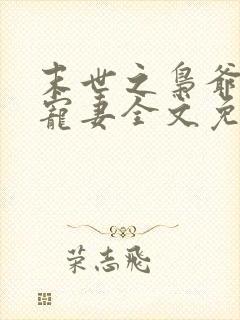 末世之枭爷
宠妻全文免
荣志飞